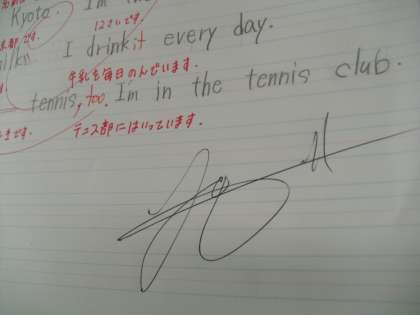 Kyoto. I'm
12さいです。
I drink it every day.
牛乳を毎日のんでいます。
tennis, too. I'm in the tennis club.
テニス部にはいっています。